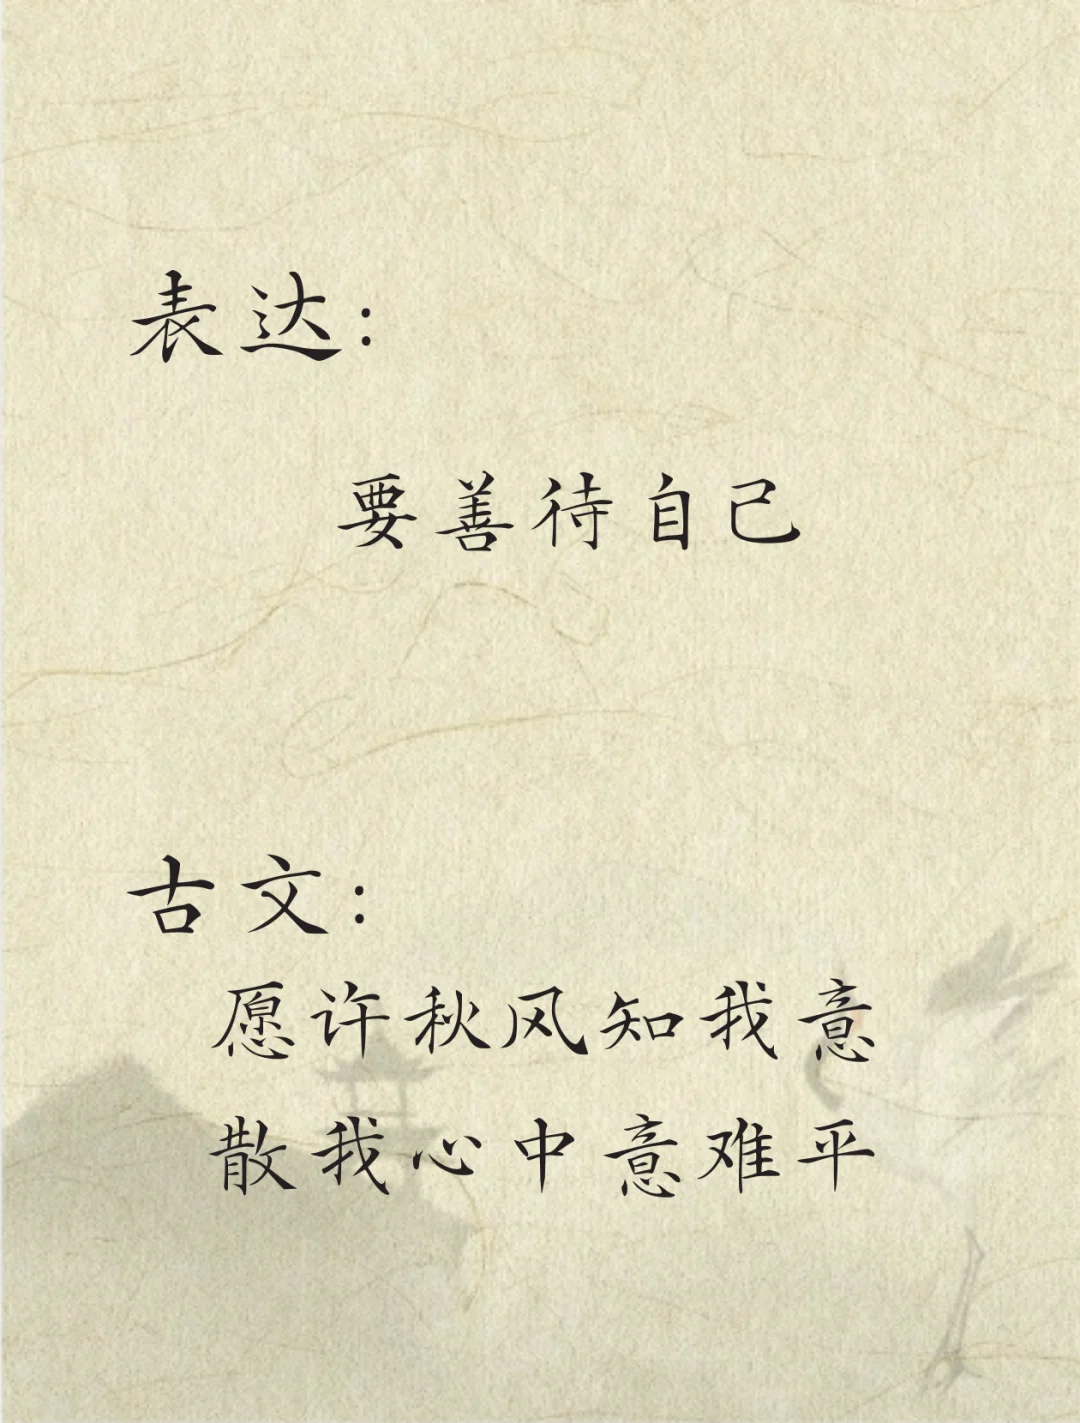 表达:
要善待自己
古文:
愿许秋风知我意
散我心中意难平